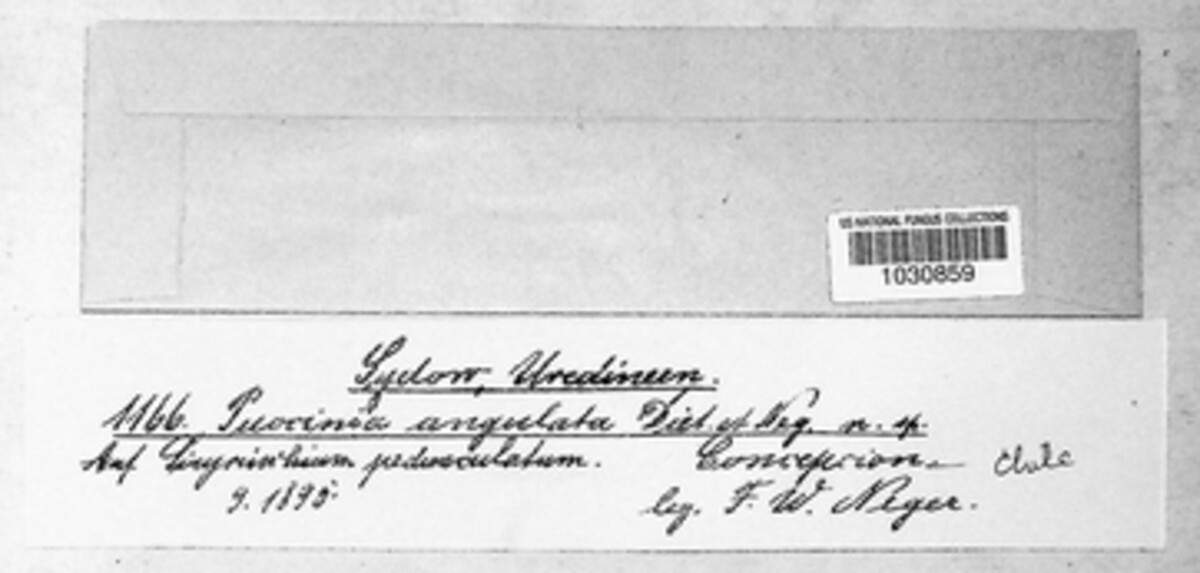 US NATIONAL FUNGUS COLLECTIONS
1030859
Sydow, Uredineen.
1166. Puccinia angulata Diet. et Neg. n. sp.
Auf Sisyrinchium pedunculatum. Concepcion. Chile
9. 1895. leg. F. W. Neger.